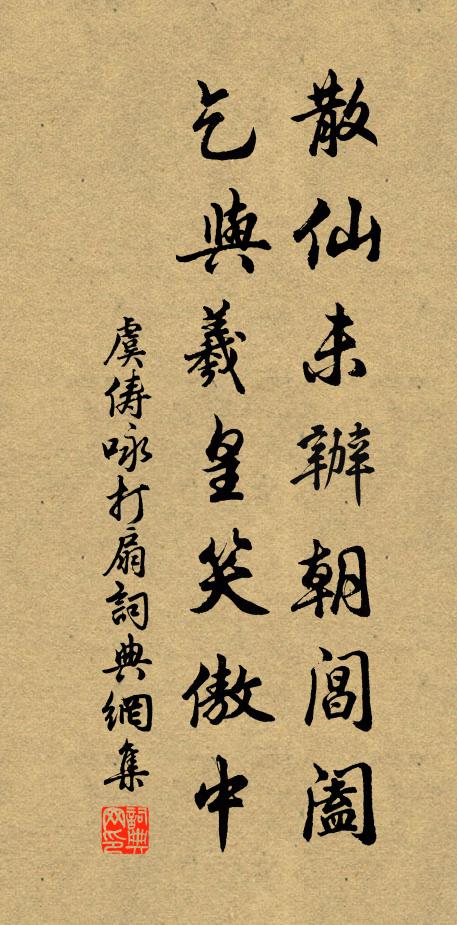 散仙未辦朝閶闔
乞與羲皇笑傲中
虞儔咏打扇詞典網集
詞典网印